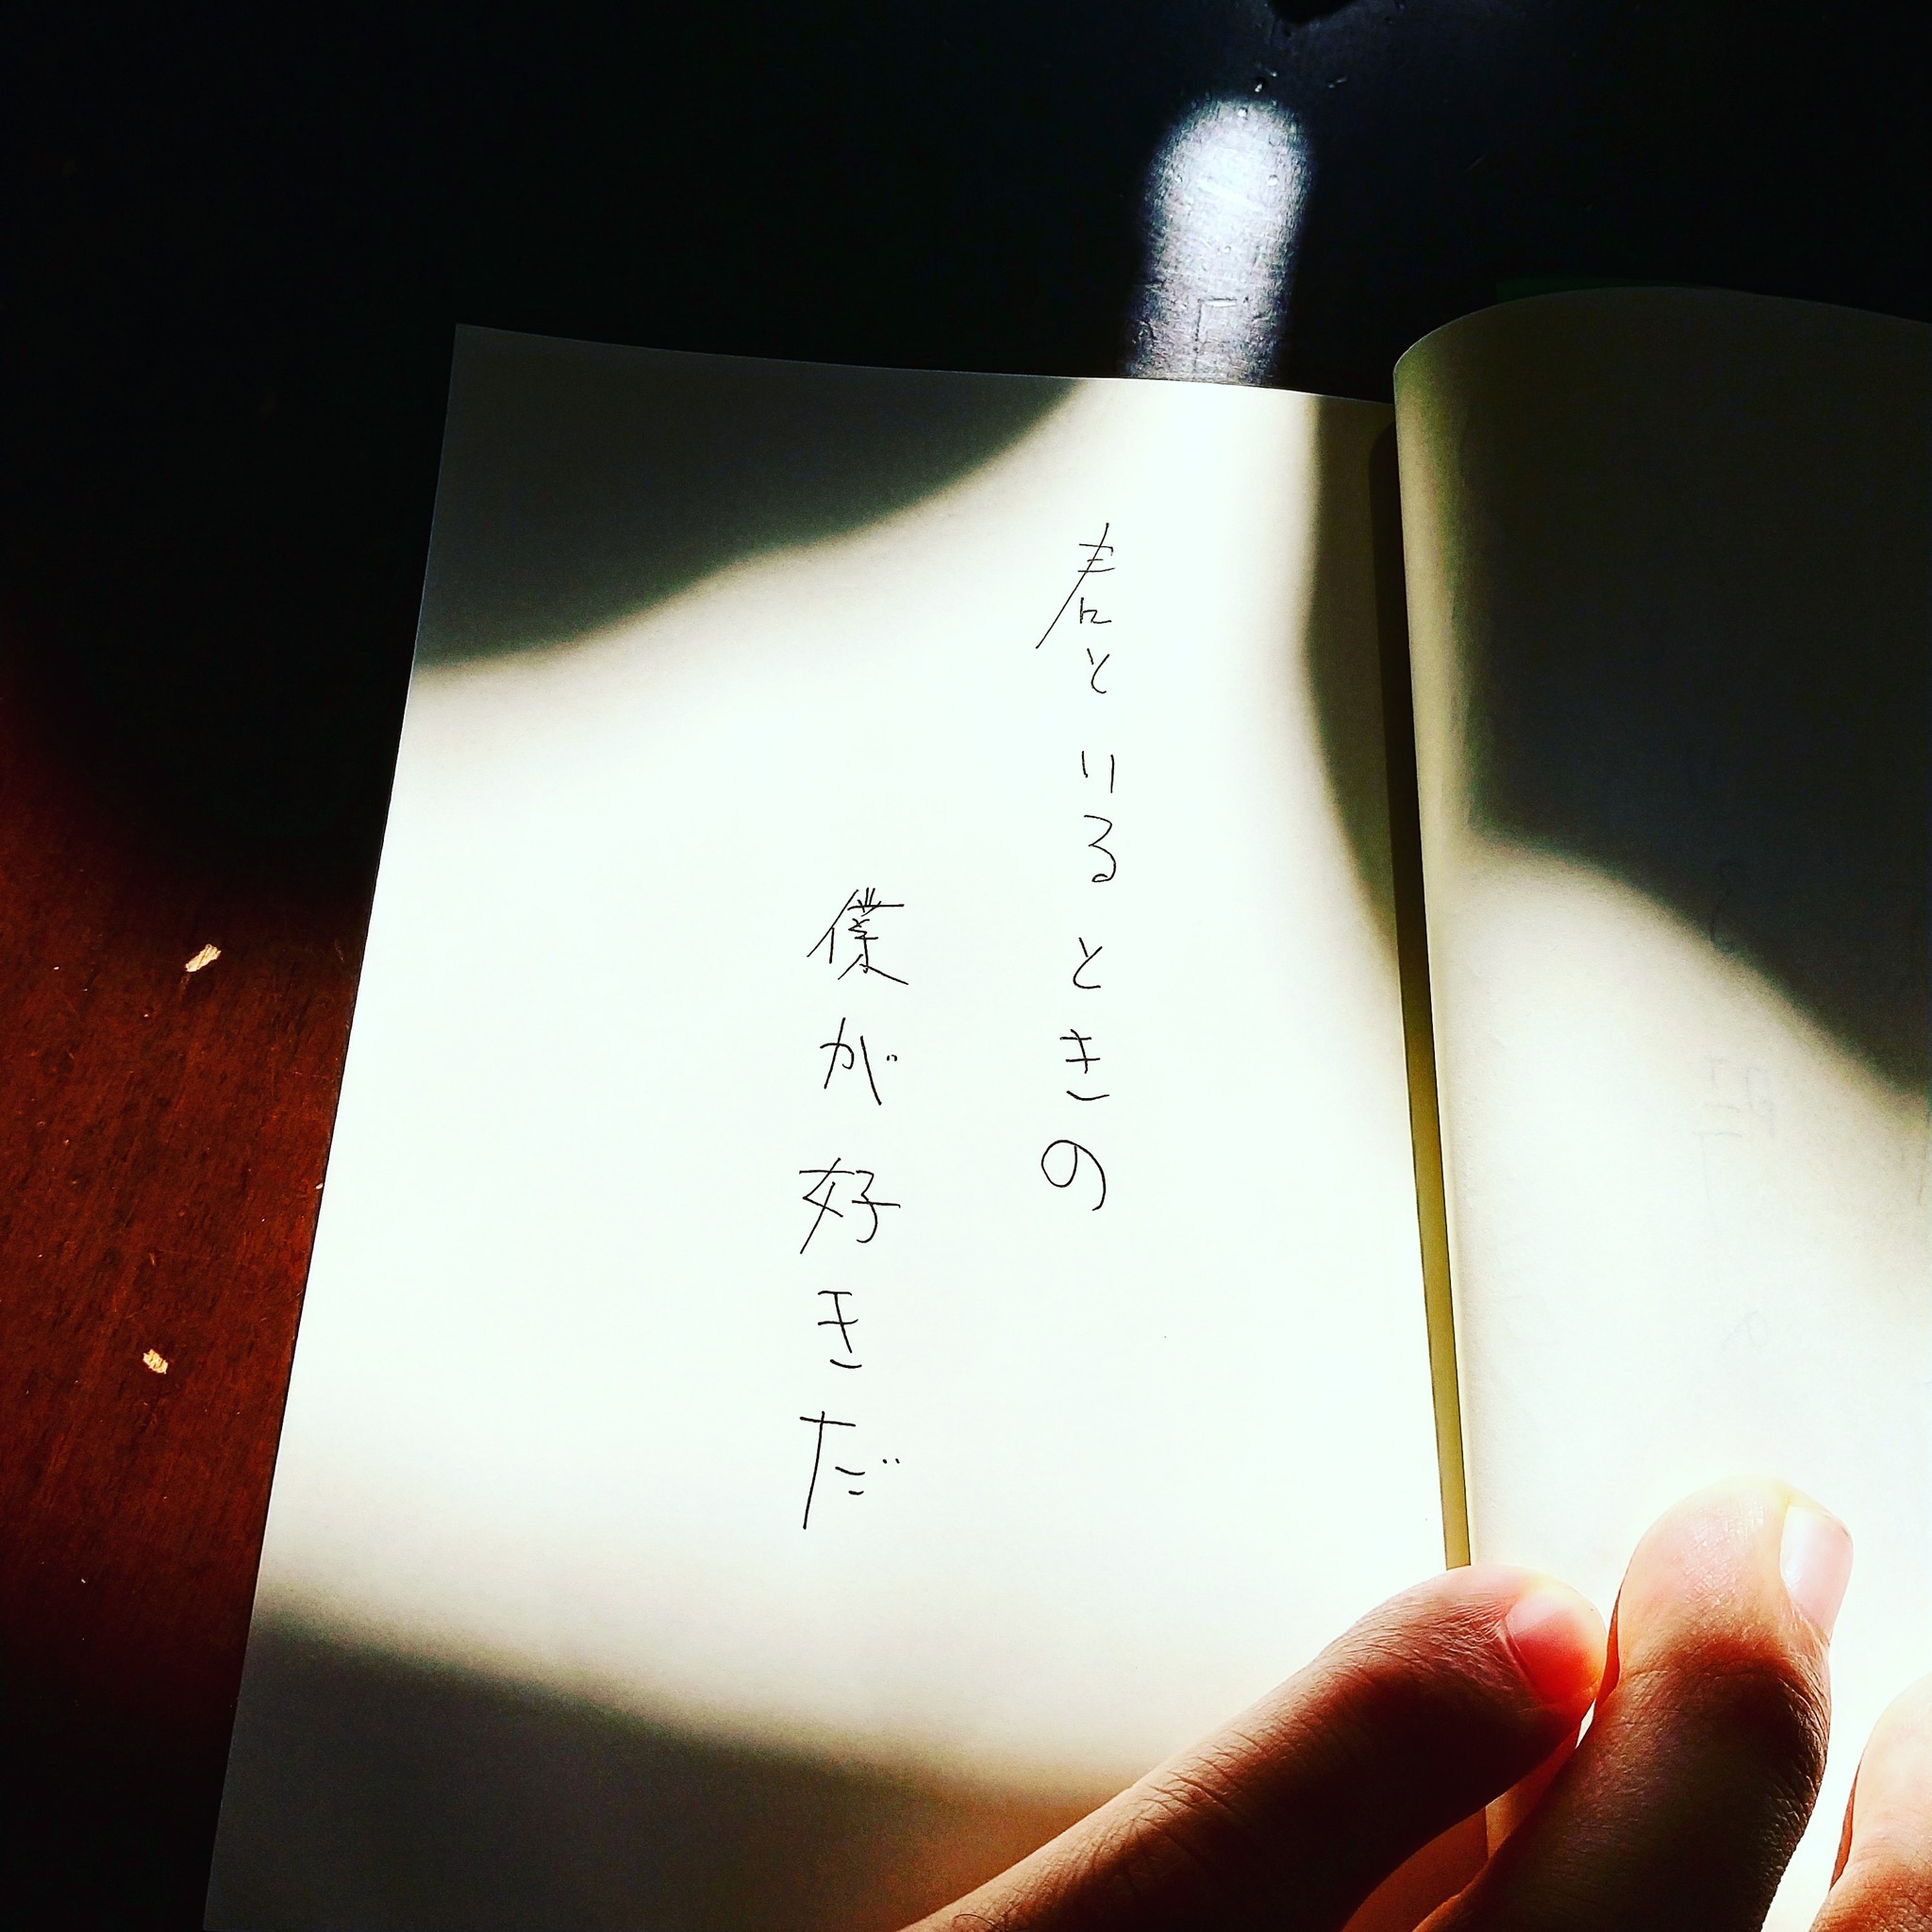 君といるときの
僕が好きだ